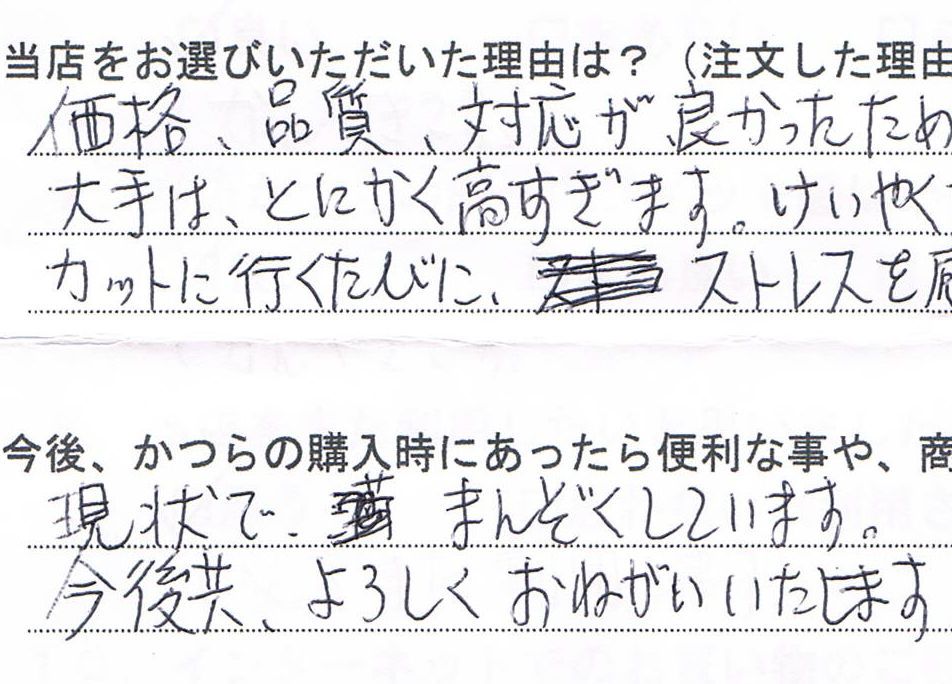 当店をお選びいただいた理由は？（注文した理由
価格、品質、対応が良かったため
大手は、とにかく高すぎます。けいやく
カットに行くたびに、ストレスを
今後、かつらの購入時にあったら便利な事や、商
現状で、まんぞくしています。
今後共、よろしくおねがいいたします